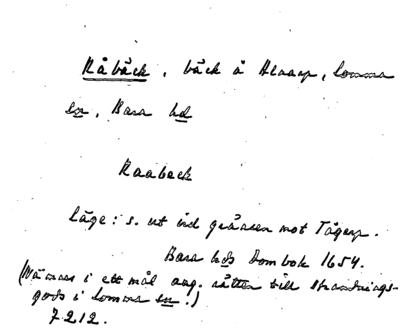 Råbäck, bäck å Alnarp, Lomma
sn, Bara hd
Raabeck
Läge: s. ut vid gränsen mot Tågarp.
Bara hds Dombok 1654.
(Nämnes i ett mål ang. rätten till strandnings-
gods i Lomma sn.)
7.2.12.